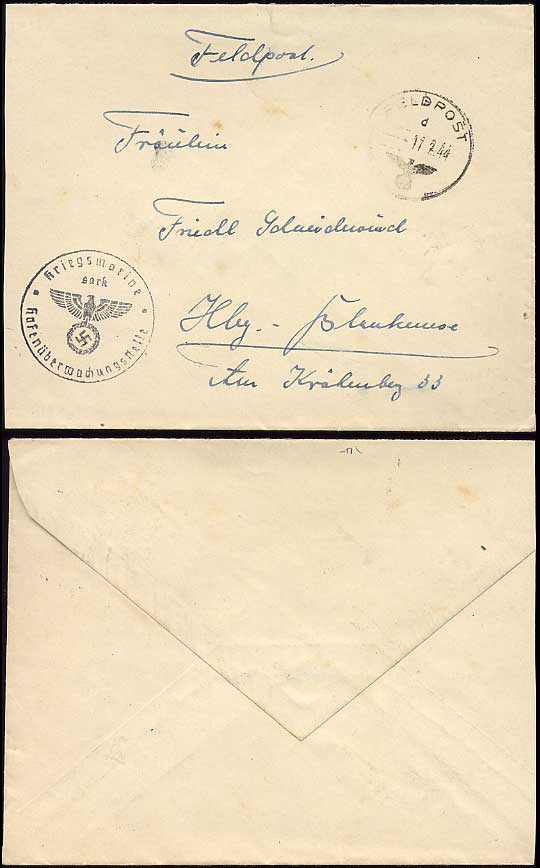 Feldpost.
FELDPOST
d
-11.2.44
Fräulein
Friedl Schneidewind
Kriegsmarine
Sark
Hafenüberwachungsstelle
Hbg. - Blankenese
Am Krähenberg 33